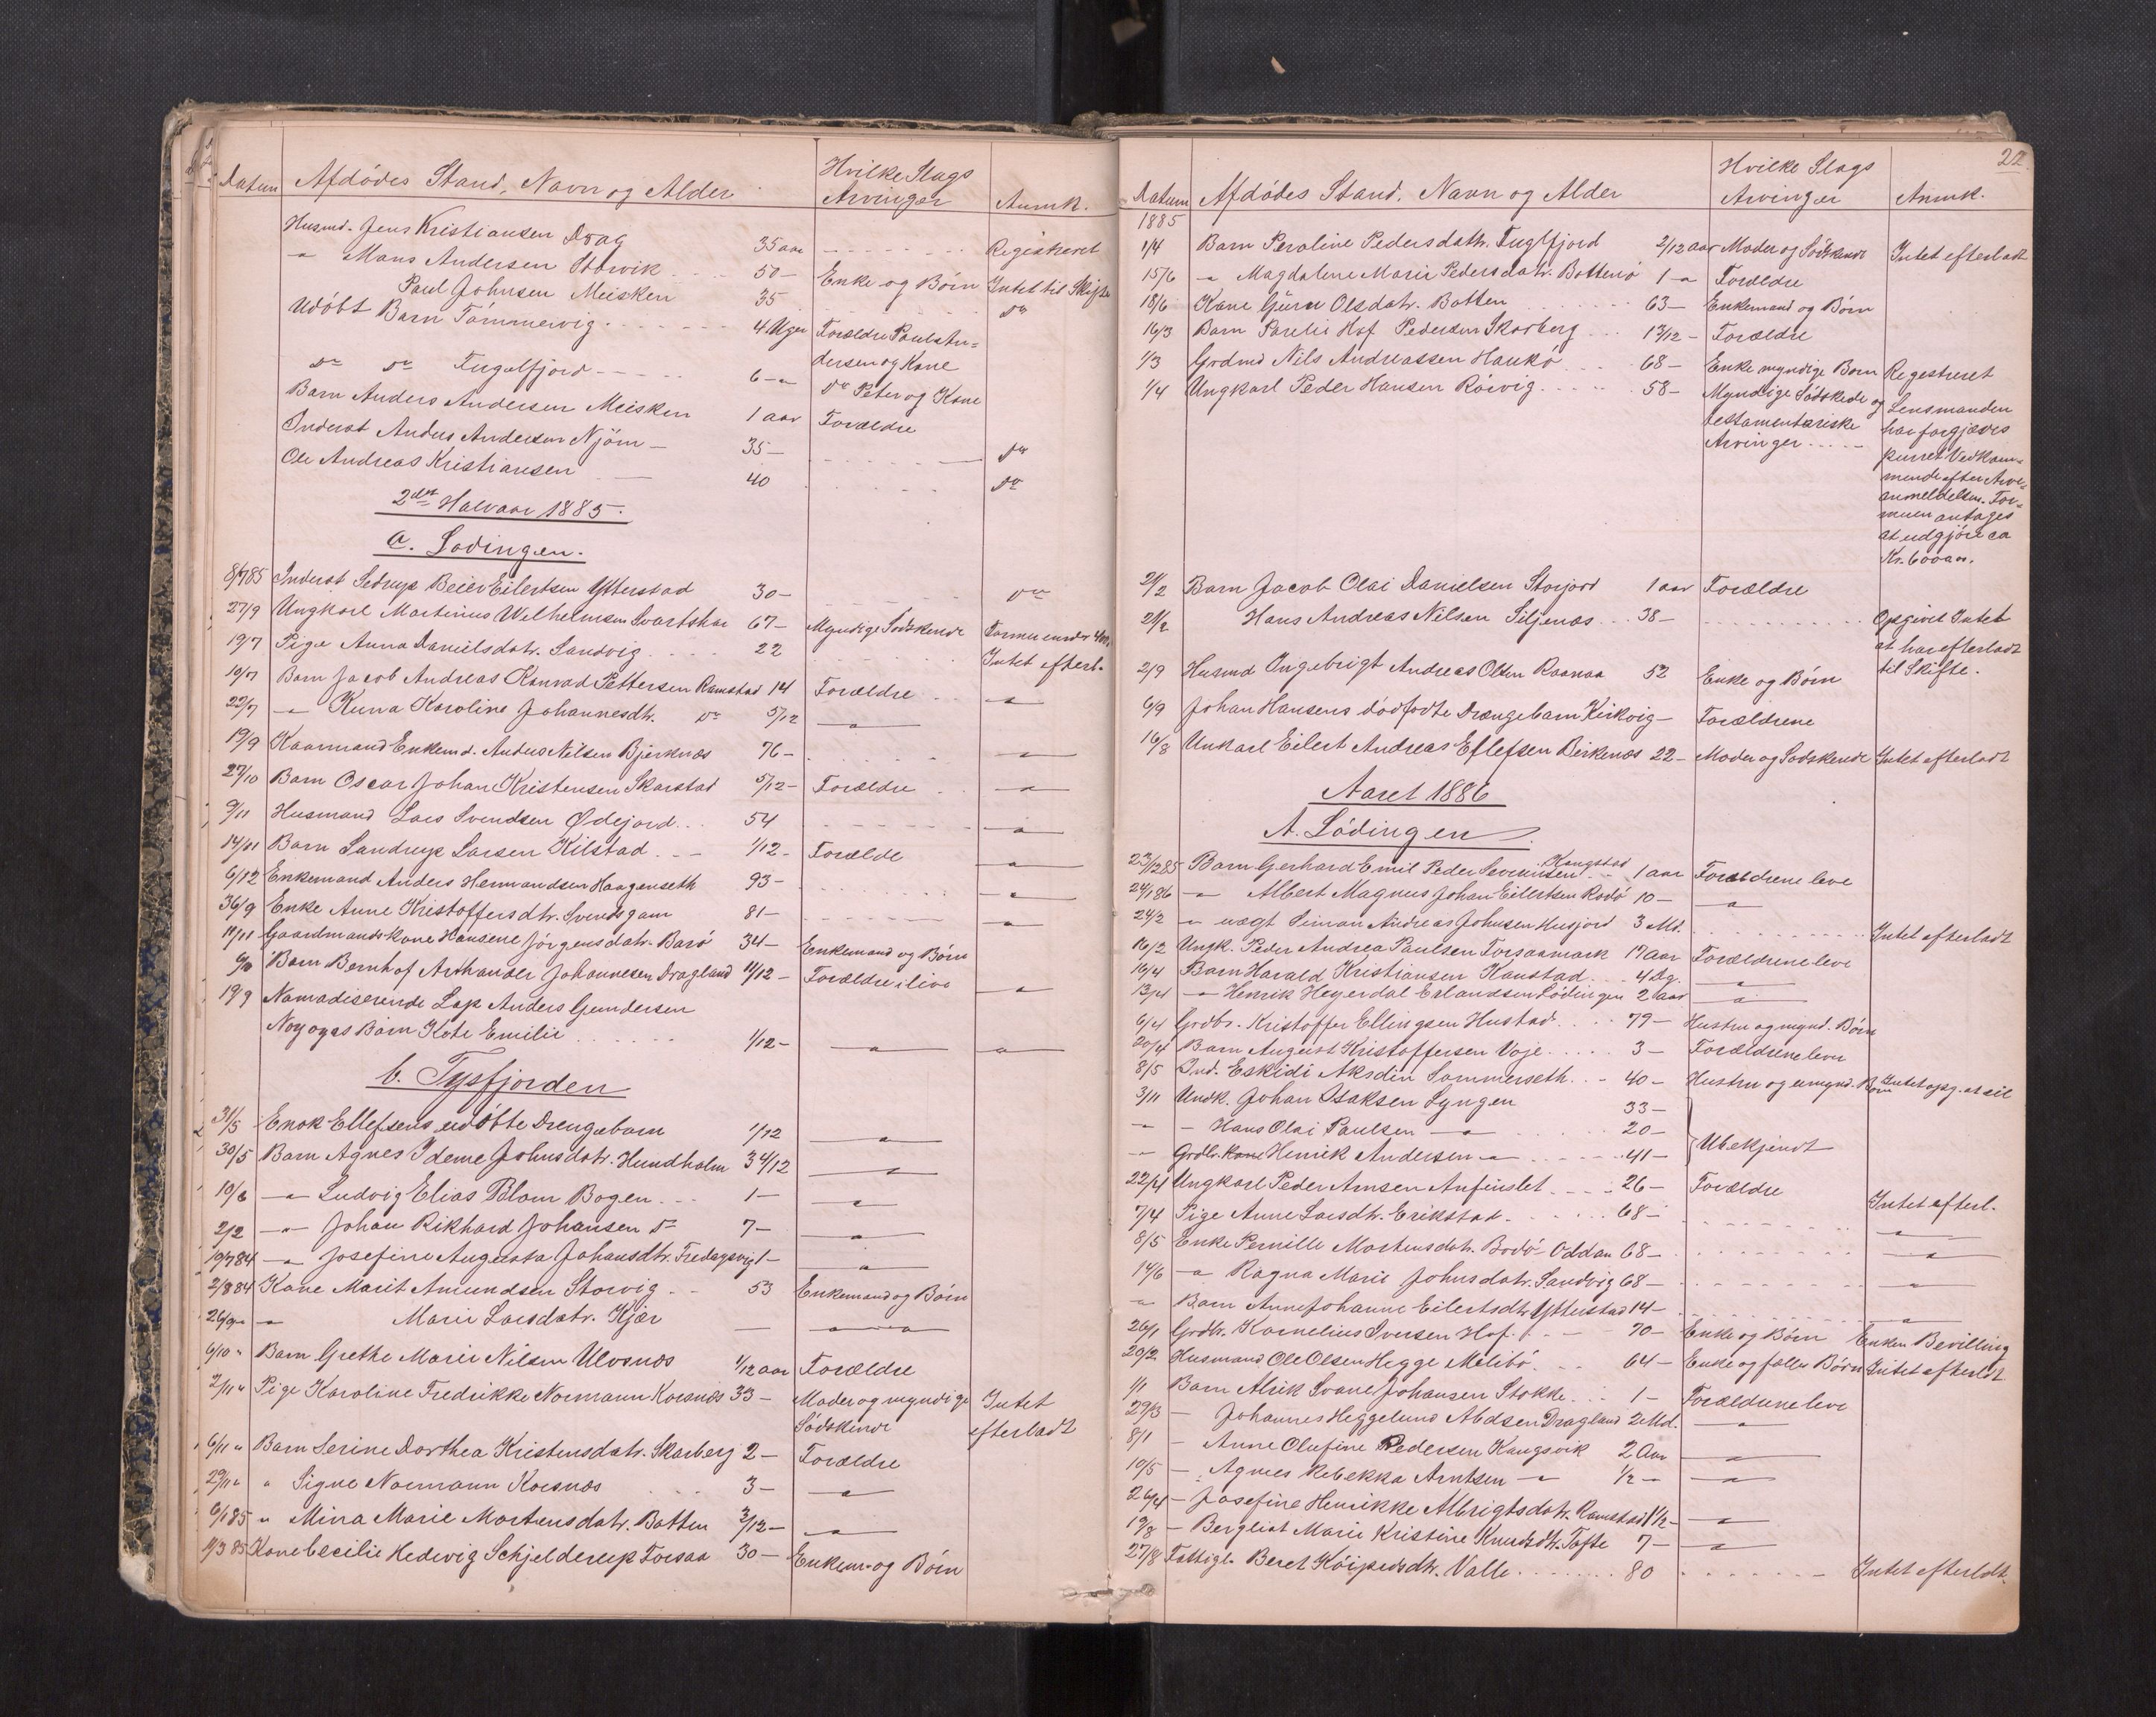 Datum Afdödes Stand, Navn og Alder Hvilke Slags Arvinger Anmk.
Husmd. Jens Kristiansen Drag 35 aar Registreret
" Mons Andersen Storvik 50 — Enke og Börn Intet til Skifte
Paul Johnsen Meisken 35 Do
Udöbt Barn Tömmervig 4 Uger Forældre Paul An-
dersen og Kone
Do Do Fugelfjord 6 — " Do Peter og Kone
Barn Anders Andersen Meisken 1 aar Forældre
Inderst Anders Andersen Njöm — 35 — Do
Ole Andreas Kristiansen 40 Do
2det Halvaar 1885.
a. Lødingen.
8/7 85 Inderst Beier Eilertsen Ytterstad 30 — Do
27/9 Ungkarl Martinus Wilhelmsen 67 — Myndige Södskende
19/7 Pige Anna Danielsdatr. Sandvig 22 Intet efterl.
10/7 Barn Jacob Andreas Konrad Pettersen Ramstad 14 Forældre "
22/7 " Runa Karoline Johannesdtr. Do 5/12 " "
19/9 Kaarmand Enkemd. Anders Nilsen Bjerknæs 76 — "
27/10 Barn Oscar Johan Kristensen Skarstad 5/12 — Forældre "
9/11 Husmand Lars Svendsen Ødejord 54 "
14/11 Barn Sandrup Larsen Kilstad 1/12 — Forælde "
6/12 Enkemand Anders Hermandsen Haagenseth 93 — "
36/9 Enke Anne Kristoffersdtr. Svendsgam 81 — "
11/11 Gaardmandskone Hansene Jörgensdatr. Barö 34 — Eenkemand og Börn
9/10 Barn Bernhof Arthander Johannesen Dragland 11/12 — Forældre i live "
19/9 Nomadiserende Lap Anders Gundersen
Barn Kote Emilie 1/12 — " "
b. Tysfjorden
31/5 Enok Ellefsens udöbte Drengebarn 1/12 "
30/5 Barn Agnes Ideme Johnsdatr. Hundholm 3 4/12 "
10/6 " Ludvig Elias Blom Bogen 1 — "
2/2 " Johan Rikhard Johansen Do 7 — "
19/7 84 " Josefine Augusta Johansdtr. Fredagsvig 1 — "
2/8 84 Kone Marit Amundsen Storvig 53 Enkemand og Börn
26/9 " " Marie Larsdatr. Kjær — " "
6/10 " Barn Grethe Marie Nilsen Ulvsnæs 1/12 aar Forældre
2/11 " Pige Karoline Fredrikke Normann Korsnæs 33 — Moder og myndige Intet
Södskende efterladt
6/11 " Barn Serine Dorthea Kristensdatr. Skarberg 2 — Forældre
29/11 " " Signe Normann Korsnæs 3 — "
6/1 85 " Mina Marie Mortensdatr. Botten 3/12 — "
11/3 85 Kone Cecilie Hedevig Schjelderup Forsaa 30 — Enkem. og Börn
22
Datum Afdödes Stand, Navn og Alder Hvilke Slags Arvinger Anmk.
1885
1/4 Barn Peroline Pedersdatr. Fuglfjord 2/12 aar Moder og Södskende Intet efterladt
15/6 " Magdalene Marie Pedersdatr. Bottenö 1 " Forældre
18/6 Kone Olsdatr. Botten 63 — Enkemand og Börn
16/3 Barn Hof Pedersen Skarberg 1 3/12 — Forældre
1/3 Grdmd Nils Andreassen Haukö 68 — Enke myndige Born Regestreret
1/4 Ungkarl Peder Hansen Rörvig 58 — Myndige Södskede og Lensmanden
testamentariske har forgjæves
Arvinger purret Vedkom-
mende efter Arve-
anmeldelsen. For-
muen antages
at udgjöre ca
Kr. 600 "
21/2 Barn Jacob Olai Danielsen Storjord 1 aar Forældre
21/2 Hans Andreas Nilsen Siljenæs 38 — Opgivet Intet
at har efterladt
2/9 Husmd Ingebrigt Andreas Olsen Raanaa 52 Enke og Börn til Skifte.
6/9 Johan Hansens dödfödte Drængebarn Kirkvig — Forældrene
16/8 Unkarl Eilert Andreas Eflefsen Birkenæs 22 — Moder og Södskende Intet efterladt
Aaret 1886
A. Lödingen.
23/12 85 Barn Gerhard Emil Peder Severinsen Kangstad 1 aar Forældrene leve
24/1 86 " Albert Magnus Johan Eilertsen Rodö 10 — "
24/2 " uægt Simon Andreas Johnsen Husjord 3 Md. Intet efterladt
16/2 Ungk. Peder Andrea Paulsen Forsaamark 17 aar Forældrene leve
16/4 Barn Harald Kristiansen Kanstad 4 Dg. "
13/4 " Henrik Heyerdal Erlandsen Lödingen 2 aar "
6/4 Grdbr. Kristoffer Ellingsen Hustad 79 — Hustru og mynd. Börn
20/4 Barn August Kristoffersen Voje 3 — Forældrene lever
8/5 Ind. Eskidi Aksdin Sommerseth 40 — Hustru og umynd. Born Intet opg. at eie
3/11 Undk. Johan Isaksen Lyngen 33 —
" — Hans Olai Paulsen " 20 — } Ubekjendt
" Grdbr. Henrik Andersen " 41 —
22/4 Ungkarl Peder Arnsen Anfinslet 26 — Forældre
7/4 Pige Anne Larsdtr. Erikstad 68 — Intet efterl.
8/5 Enke Pernille Mortensdatr. Bodö-Oddan 68 — "
14/6 " Ragna Marie Johnsdatr. Sandvig 68 — "
" Barn Anne Johanne Eilertsdtr. Ytterstad 14 — "
26/1 Grdbr. Kornelius Iversen Hof 70 — Enke og Börn Enken Bevilling
20/2 Husmand Ole Olsen Hegge Melibö 64 — Enke og fælles Börn Intet efterladt
1/1 Barn Alrik Svane Johansen Stokke 1 — Forældrene leve
29/3 — Johannes Heggelund Dragland 2 Md. "
8/1 — Anne Olufine Pedersen Kangsvik 2 Aar "
10/5 — Agnes Rebekka Arntsen " 1/2 — "
26/4 — Josefine Henrikke Albrigtsdatr. Ramstad 1 1/2 — "
19/8 — Bergliot Marie Kristine Knudsdtr. Tofte 7 — "
27/8 Fattigl. Beret Valle 80 Intet efterladt.